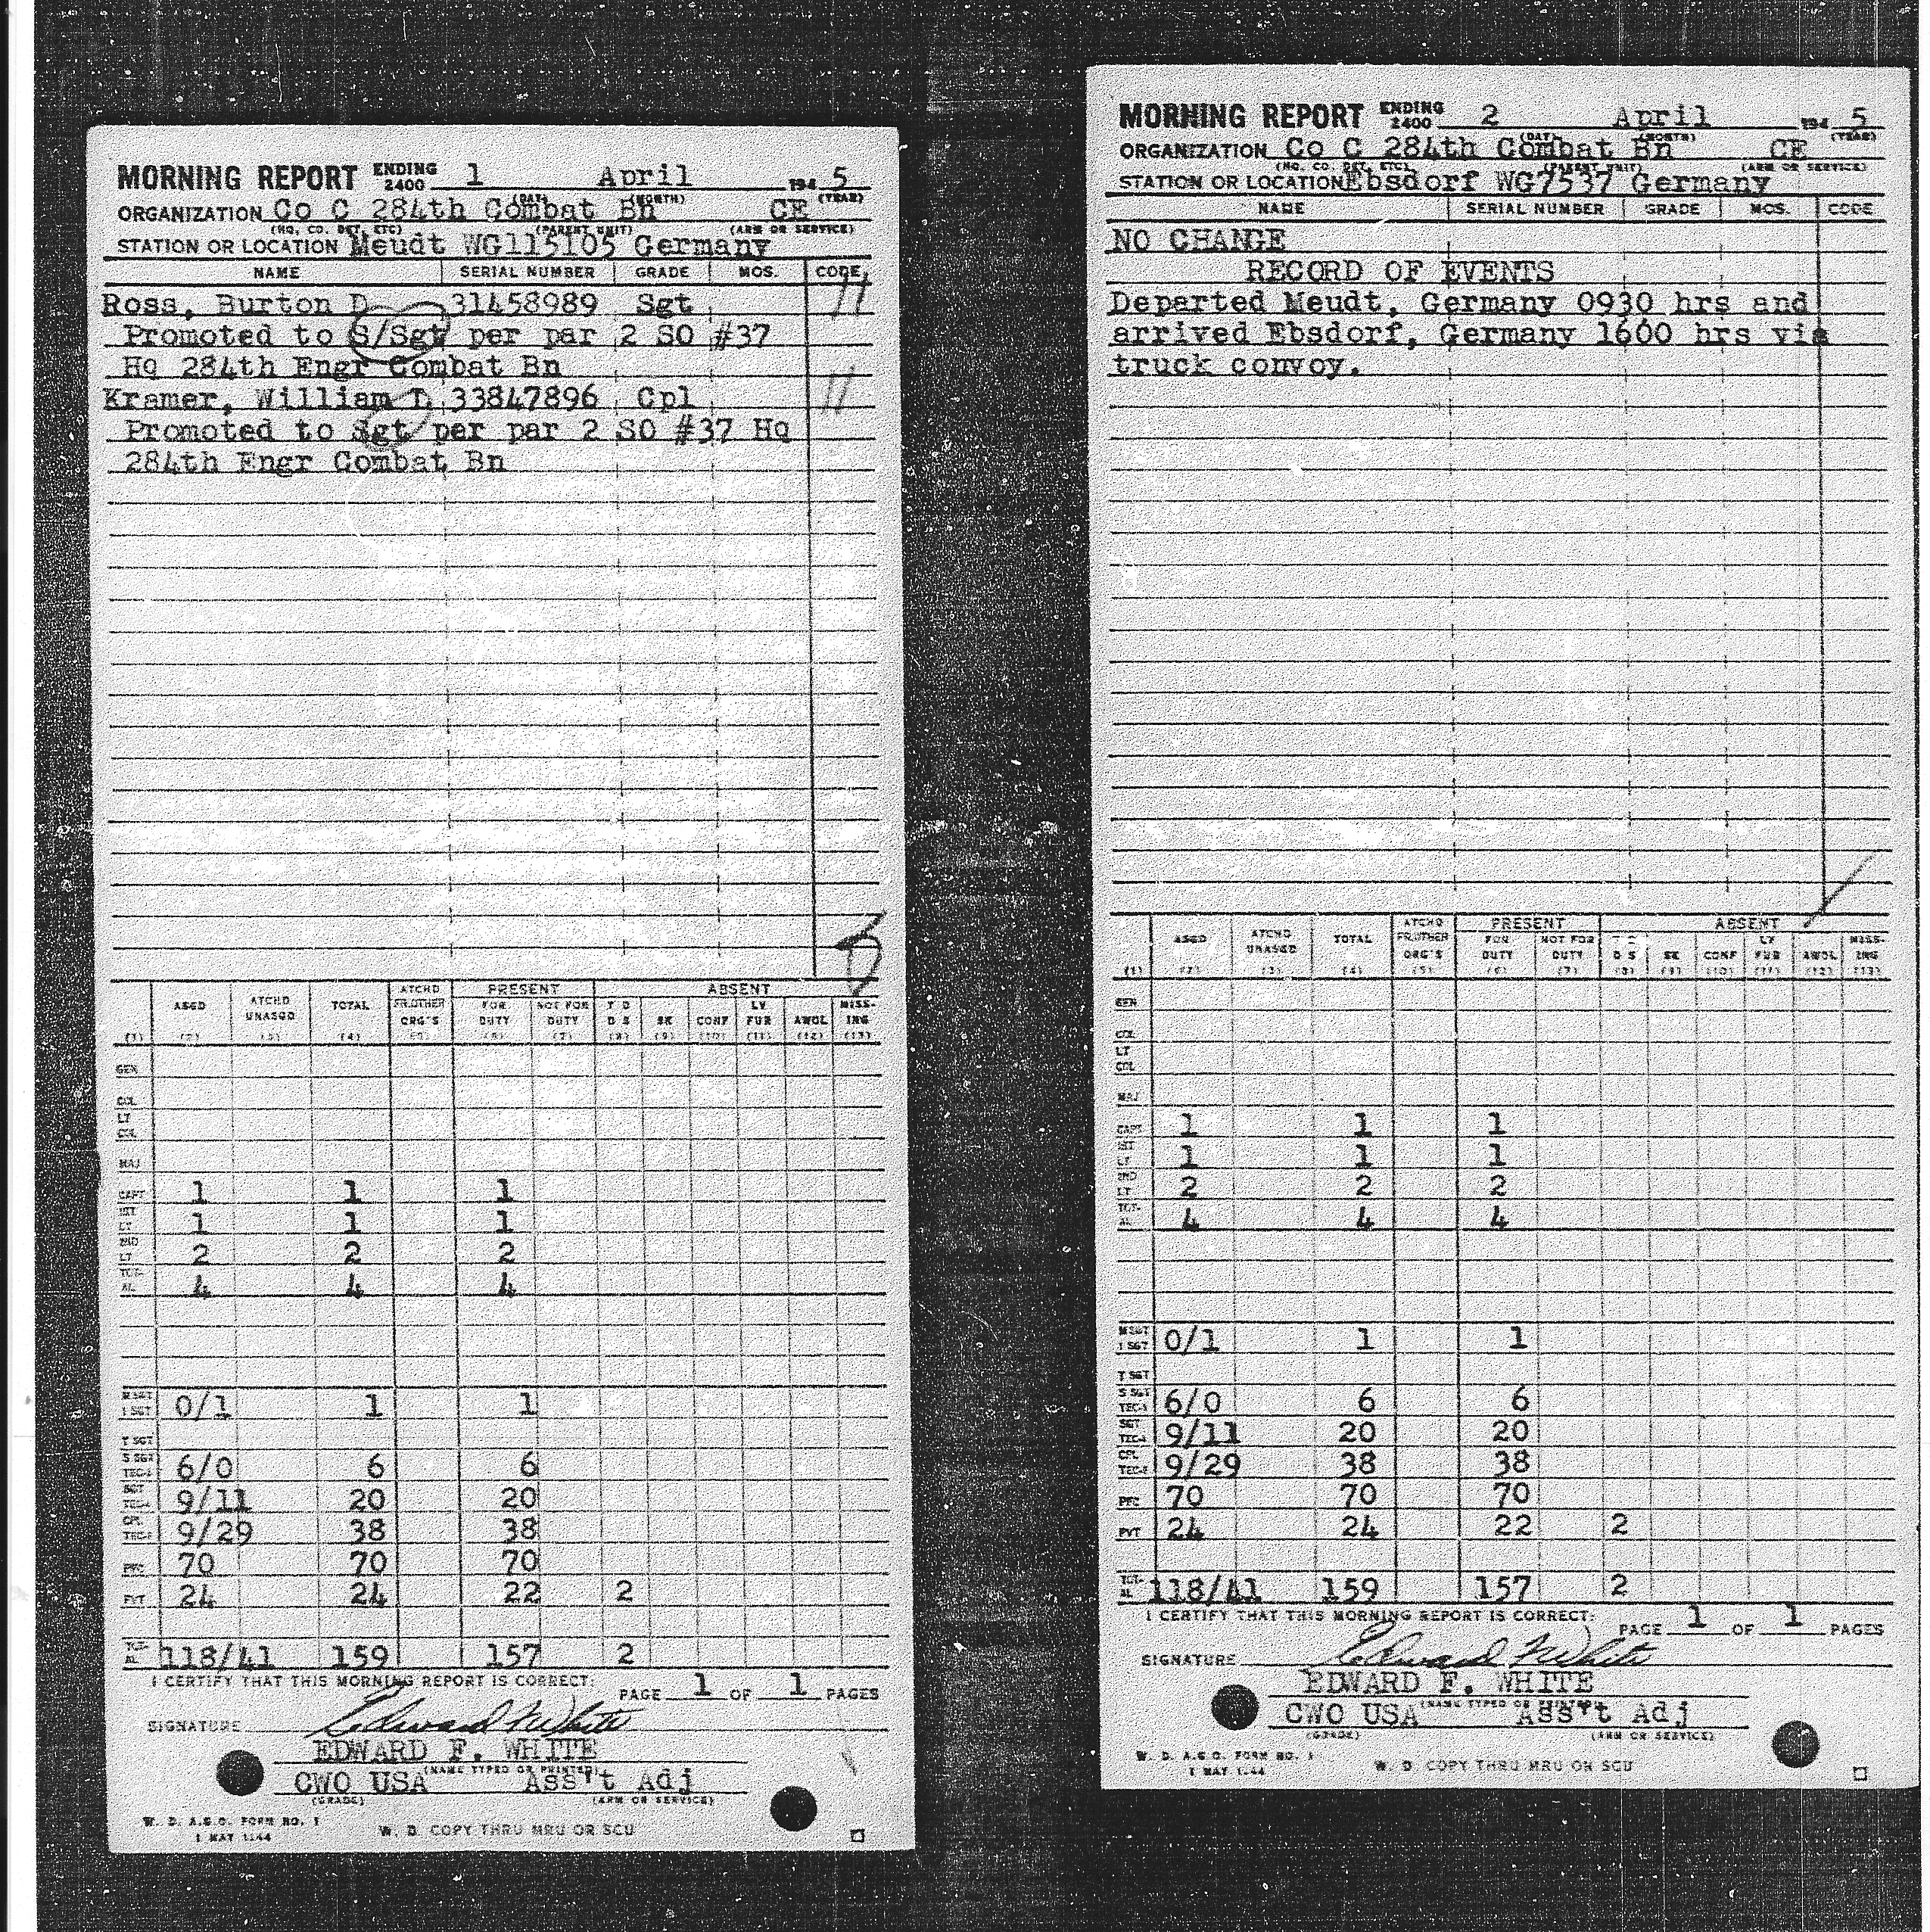 MORNING REPORT ENDING 2400 1 April 194 5
(DAY) (MONTH) (YEAR)
ORGANIZATION Co C 284th Combat Bn CE
(HQ. CO. DET. ETC) (PARENT UNIT) (ARM OR SERVICE)
STATION OR LOCATION Meudt WG115105 Germany
NAME SERIAL NUMBER GRADE MOS. CODE
Ross, Burton D 31458989 Sgt 11
Promoted to S/Sgt per par 2 SO #37
Hq 284th Engr Combat Bn
Kramer, William 33847896 Cpl 11
Promoted to Sgt per par 2 SO #37 Hq
284th Engr Combat Bn
ATCHD PRESENT ABSENT
ASGD ATCHD UNASGD TOTAL FR.OTHER ORG'S FOR DUTY NOT FOR DUTY T D D S SK CONF LV FUR AWOL MISS-ING
(1) (2) (3) (4) (5) (6) (7) (8) (9) (10) (11) (12) (13)
GEN
COL
LT COL
MAJ
CAPT 1 1 1
1ST LT 1 1 1
2ND LT 2 2 2
TOT-AL 4 4 4
M SGT 1 SGT 0/1 1 1
T SGT
S SGT TEC-3 6/0 6 6
SGT TEC-4 9/11 20 20
CPL TEC-5 9/29 38 38
PFC 70 70 70
PVT 24 24 22 2
TOT-AL 118/41 159 157 2
I CERTIFY THAT THIS MORNING REPORT IS CORRECT:
PAGE 1 OF 1 PAGES
SIGNATURE Edward F White
EDWARD F. WHITE
(NAME TYPED OR PRINTED)
CWO USA Ass't Adj
(GRADE) (ARM OR SERVICE)
W. D. A.G.O. FORM NO. 1
1 MAY 1944
W. D. COPY THRU MRU OR SCU
MORNING REPORT ENDING 2400 2 April 194 5
(DAY) (MONTH) (YEAR)
ORGANIZATION Co C 284th Combat Bn CE
(HQ. CO. DET. ETC) (PARENT UNIT) (ARM OR SERVICE)
STATION OR LOCATION Ebsdorf WG7537 Germany
NAME SERIAL NUMBER GRADE MOS. CODE
NO CHANGE
RECORD OF EVENTS
Departed Meudt, Germany 0930 hrs and
arrived Ebsdorf, Germany 1600 hrs via
truck convoy.
ATCHD PRESENT ABSENT
ASGD ATCHD UNASGD TOTAL FR.OTHER ORG'S FOR DUTY NOT FOR DUTY T D D S SK CONF LV FUR AWOL MISS-ING
(1) (2) (3) (4) (5) (6) (7) (8) (9) (10) (11) (12) (13)
GEN
COL
LT COL
MAJ
CAPT 1 1 1
1ST LT 1 1 1
2ND LT 2 2 2
TOT-AL 4 4 4
M SGT 1 SGT 0/1 1 1
T SGT
S SGT TEC-3 6/0 6 6
SGT TEC-4 9/11 20 20
CPL TEC-5 9/29 38 38
PFC 70 70 70
PVT 24 24 22 2
TOT-AL 118/41 159 157 2
I CERTIFY THAT THIS MORNING REPORT IS CORRECT:
PAGE 1 OF 1 PAGES
SIGNATURE Edward F White
EDWARD F. WHITE
(NAME TYPED OR PRINTED)
CWO USA Ass't Adj
(GRADE) (ARM OR SERVICE)
W. D. A.G.O. FORM NO. 1
1 MAY 1944
W. D. COPY THRU MRU OR SCU